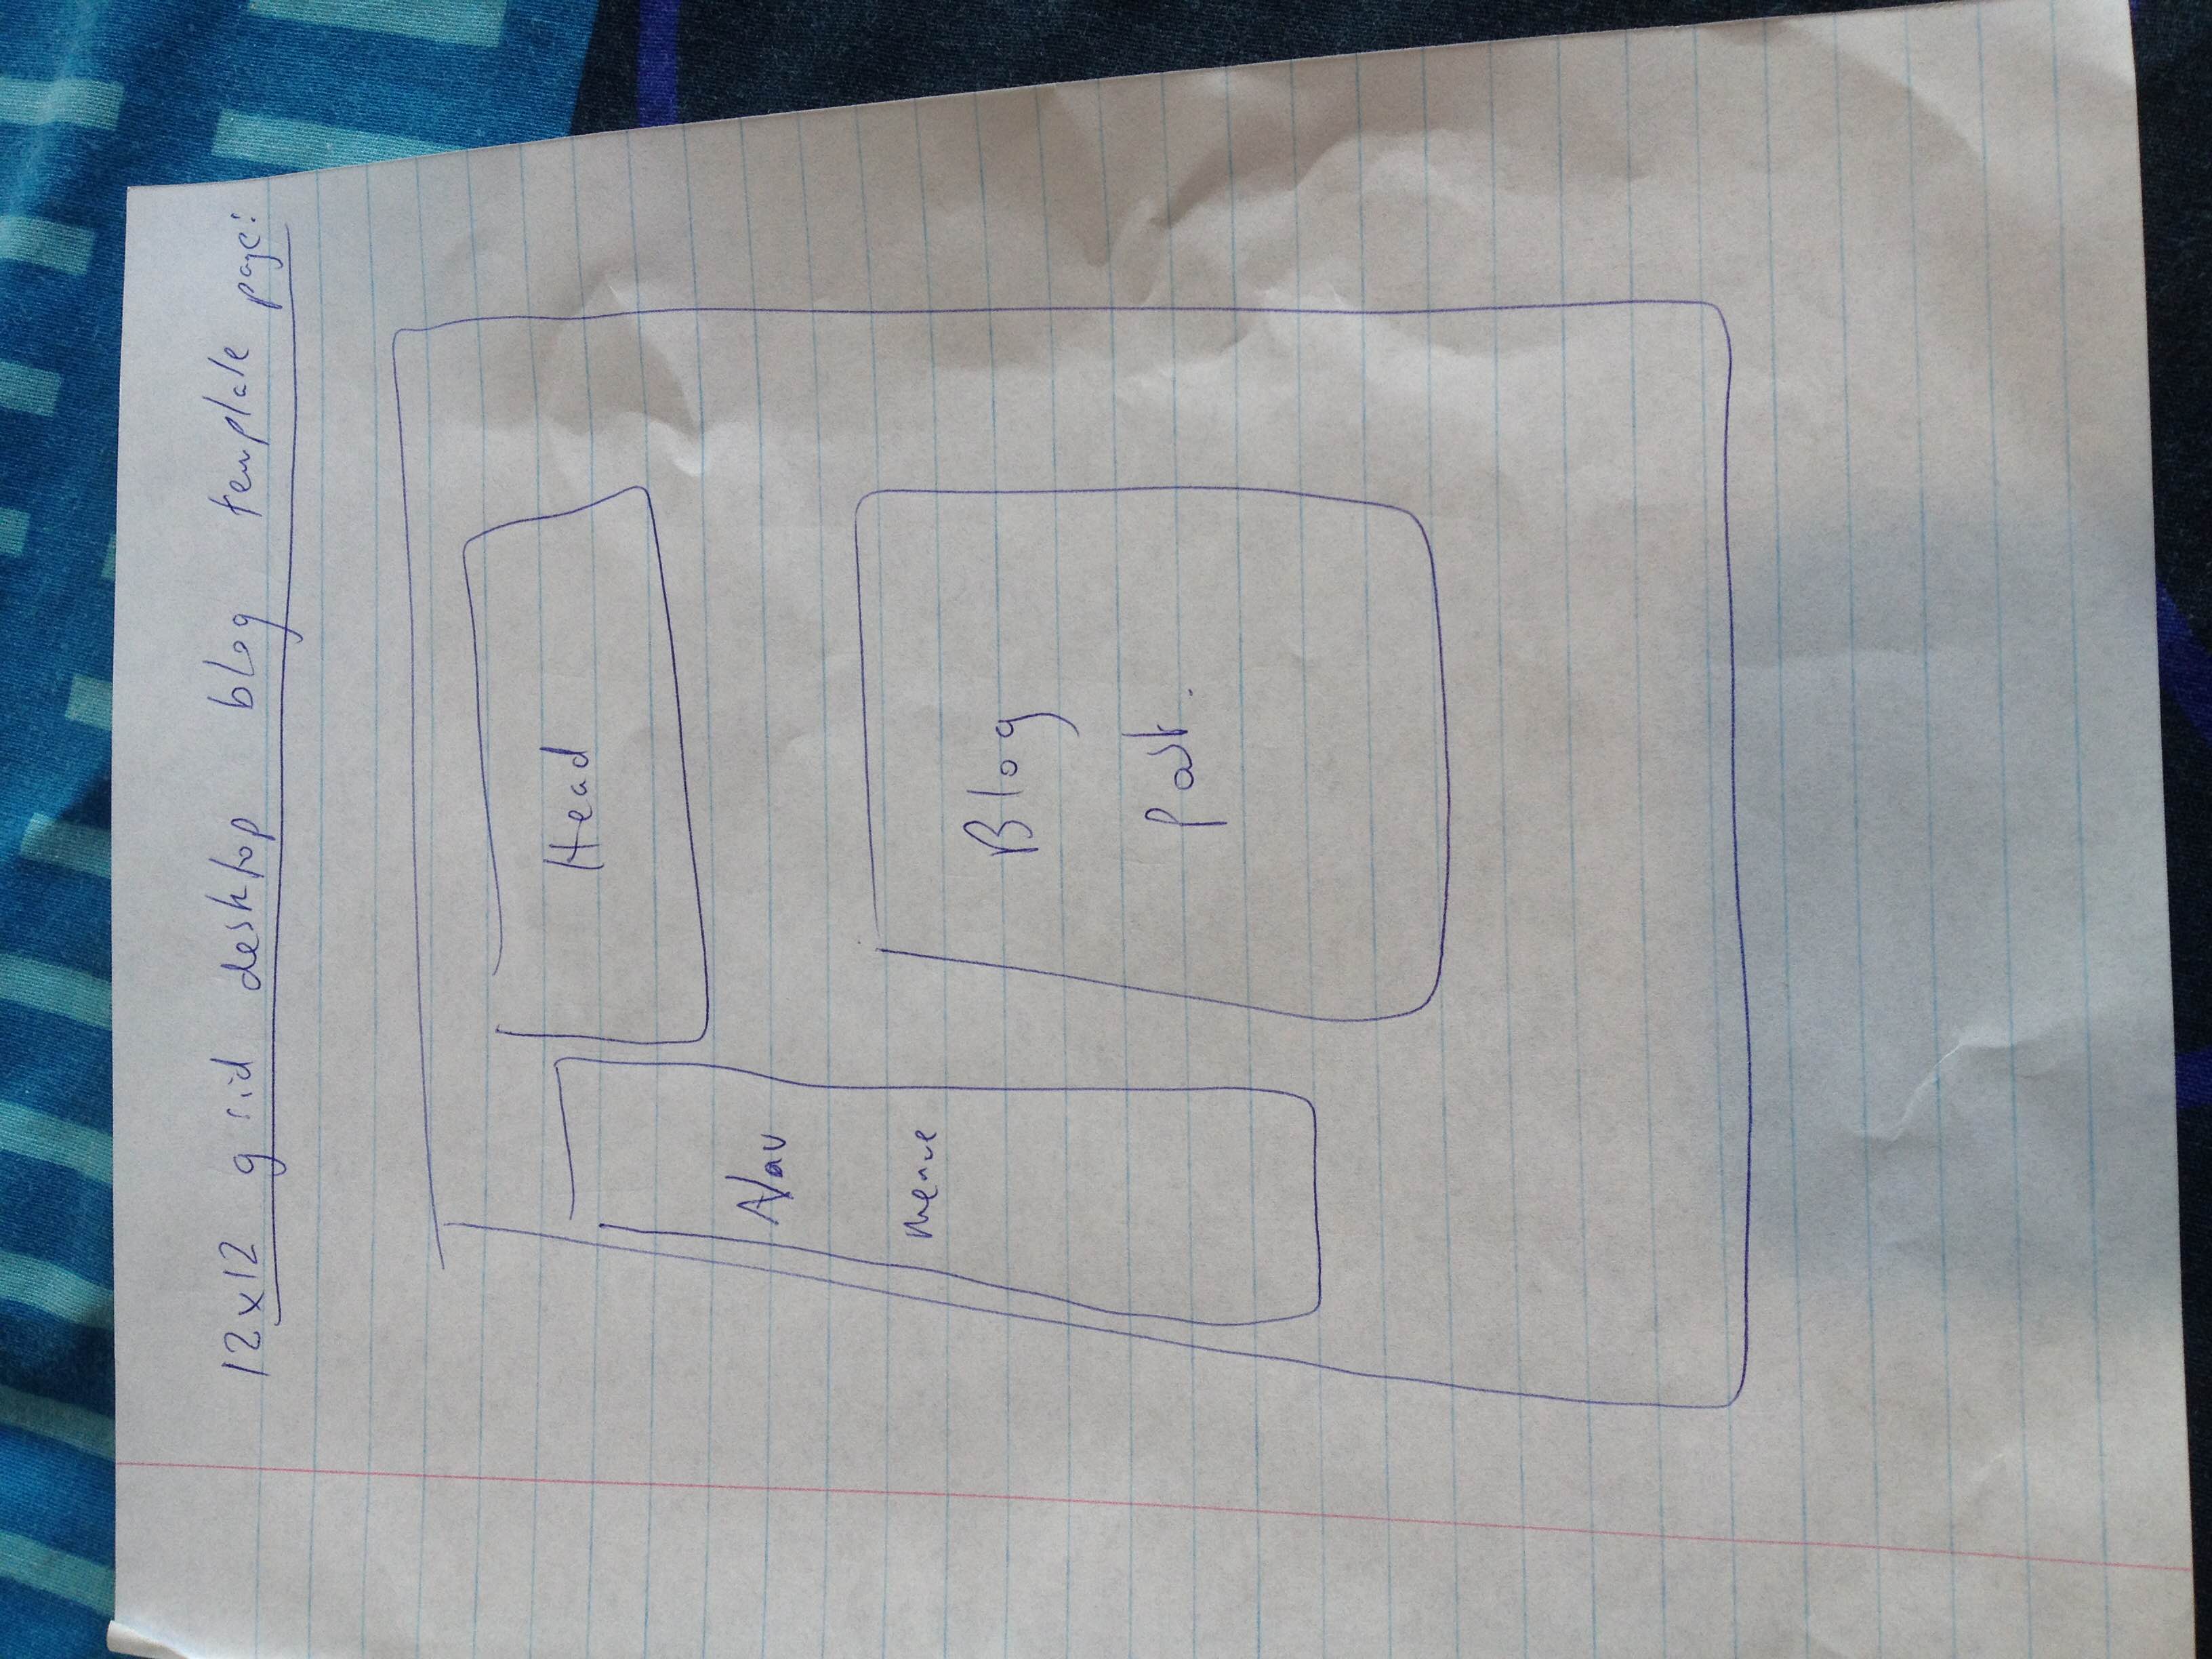 12x12 grid desktop blog template page:
Head
Nav
menue
Blog
post.